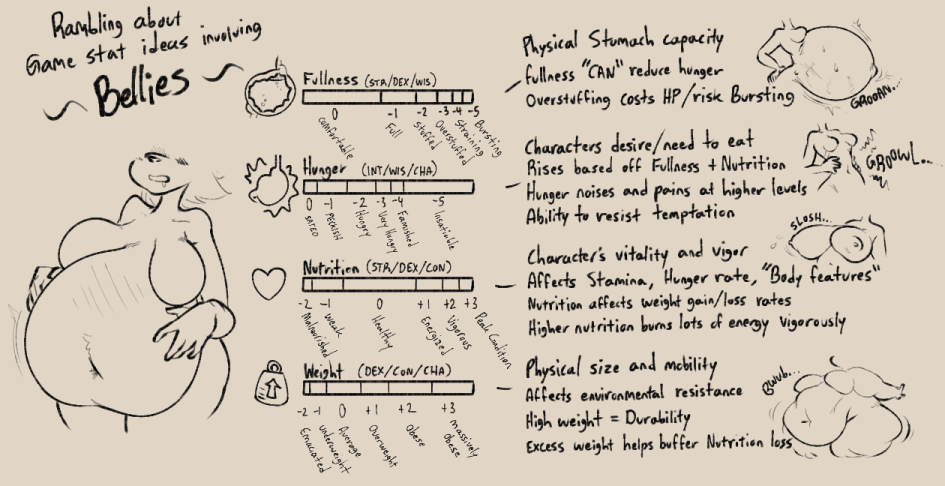 Rambling about
Game stat ideas involving
~ Bellies ~
Fullness (STR/DEX/WIS)
0 -1 -2 -3 -4 -5
Comfortable
Full
Stuffed
Overstuffed
Straining
Bursting
Hunger (INT/WIS/CHA)
0 -1 -2 -3 -4 -5
SATED
PECKISH
Hungry
Very Hungry
Famished
Insatiable
Nutrition (STR/DEX/CON)
-2 -1 0 +1 +2 +3
Malnourished
Weak
Healthy
Energized
Vigorous
Peak Condition
Weight (DEX/CON/CHA)
-2 -1 0 +1 +2 +3
Emaciated
underweight
Average
Overweight
Obese
massively
Obese
Physical Stomach capacity
fullness "CAN" reduce hunger
Overstuffing costs HP/risk Bursting
GROOAN...
Characters desire/need to eat
Rises based off Fullness + Nutrition
Hunger noises and pains at higher levels
Ability to resist temptation
GROOWL...
SLOSH...
Character's vitality and vigor
Affects Stamina, Hunger rate, "Body features"
Nutrition affects weight gain/loss rates
Higher nutrition burns lots of energy vigorously
Physical size and mobility
Affects environmental resistance
High weight = Durability
Excess weight helps buffer Nutrition loss
BWUB...